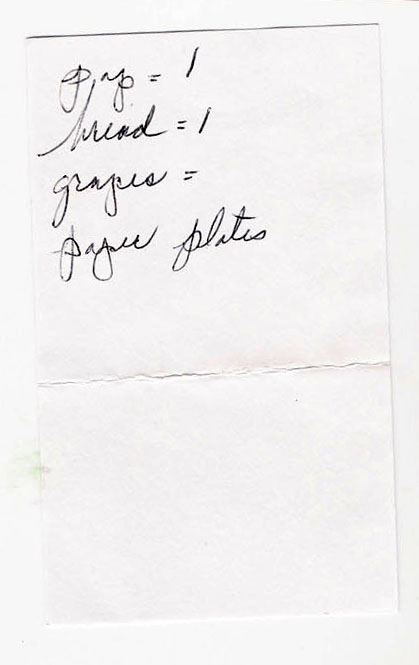 pop = 1
bread = 1
grapes =
paper plates